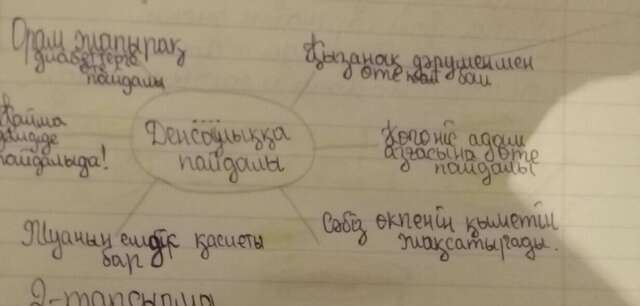 Орам жапырақ
диабеттерге
пайдалы
Қызанақ дәруменмен
өте бай
Қайма
пайдалыда!
Денсаулыққа
пайдалы
Көгөніс адам
ағзасына өте
пайдалы
Жуаның емдік қасиеты
бар
Сәбіз өкпенін қыметін
жақсатырады.
2-тапсырма